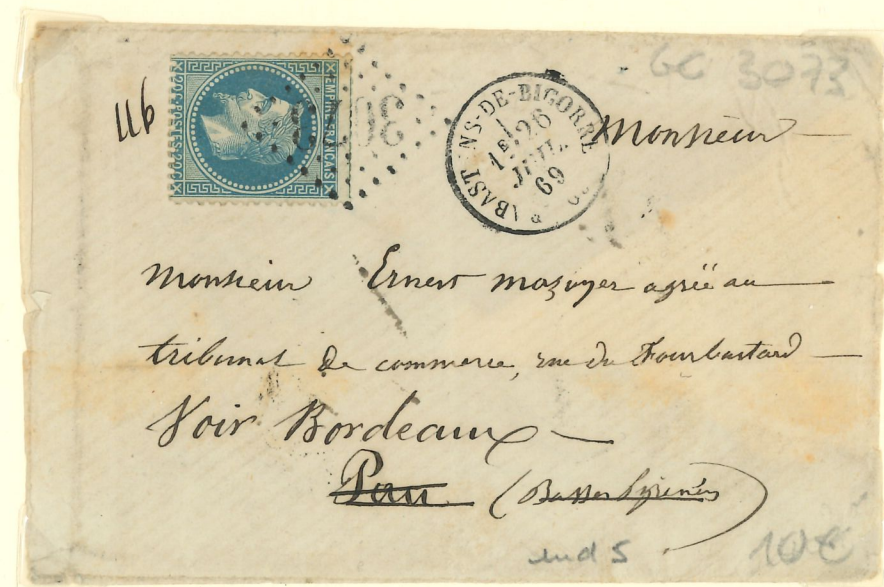 GC 3073
116
EMPIRE FRANÇAIS
20C POSTES 20C
3073
RABASTENS-DE-BIGORRE
1E
26
JUIL.
69
Monsieur
Monsieur Ernest Mazoyer agréé au
tribunal de commerce, rue du Fourbastard
Voir Bordeaux
Pau (Basses Pyrénées)
ind 5
10€